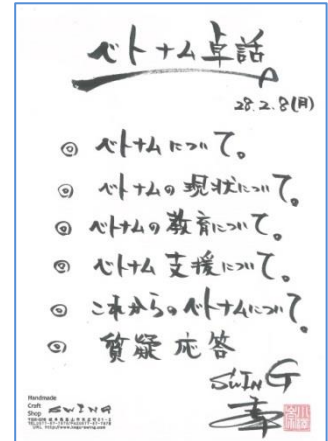 ベトナム卓話
28.2.8(月)
◎ ベトナムについて。
◎ ベトナムの現状について。
◎ ベトナムの教育について。
◎ ベトナム支援について。
◎ これからのベトナムについて。
◎ 質疑応答
SWING
Handmade
Craft
Shop SWING